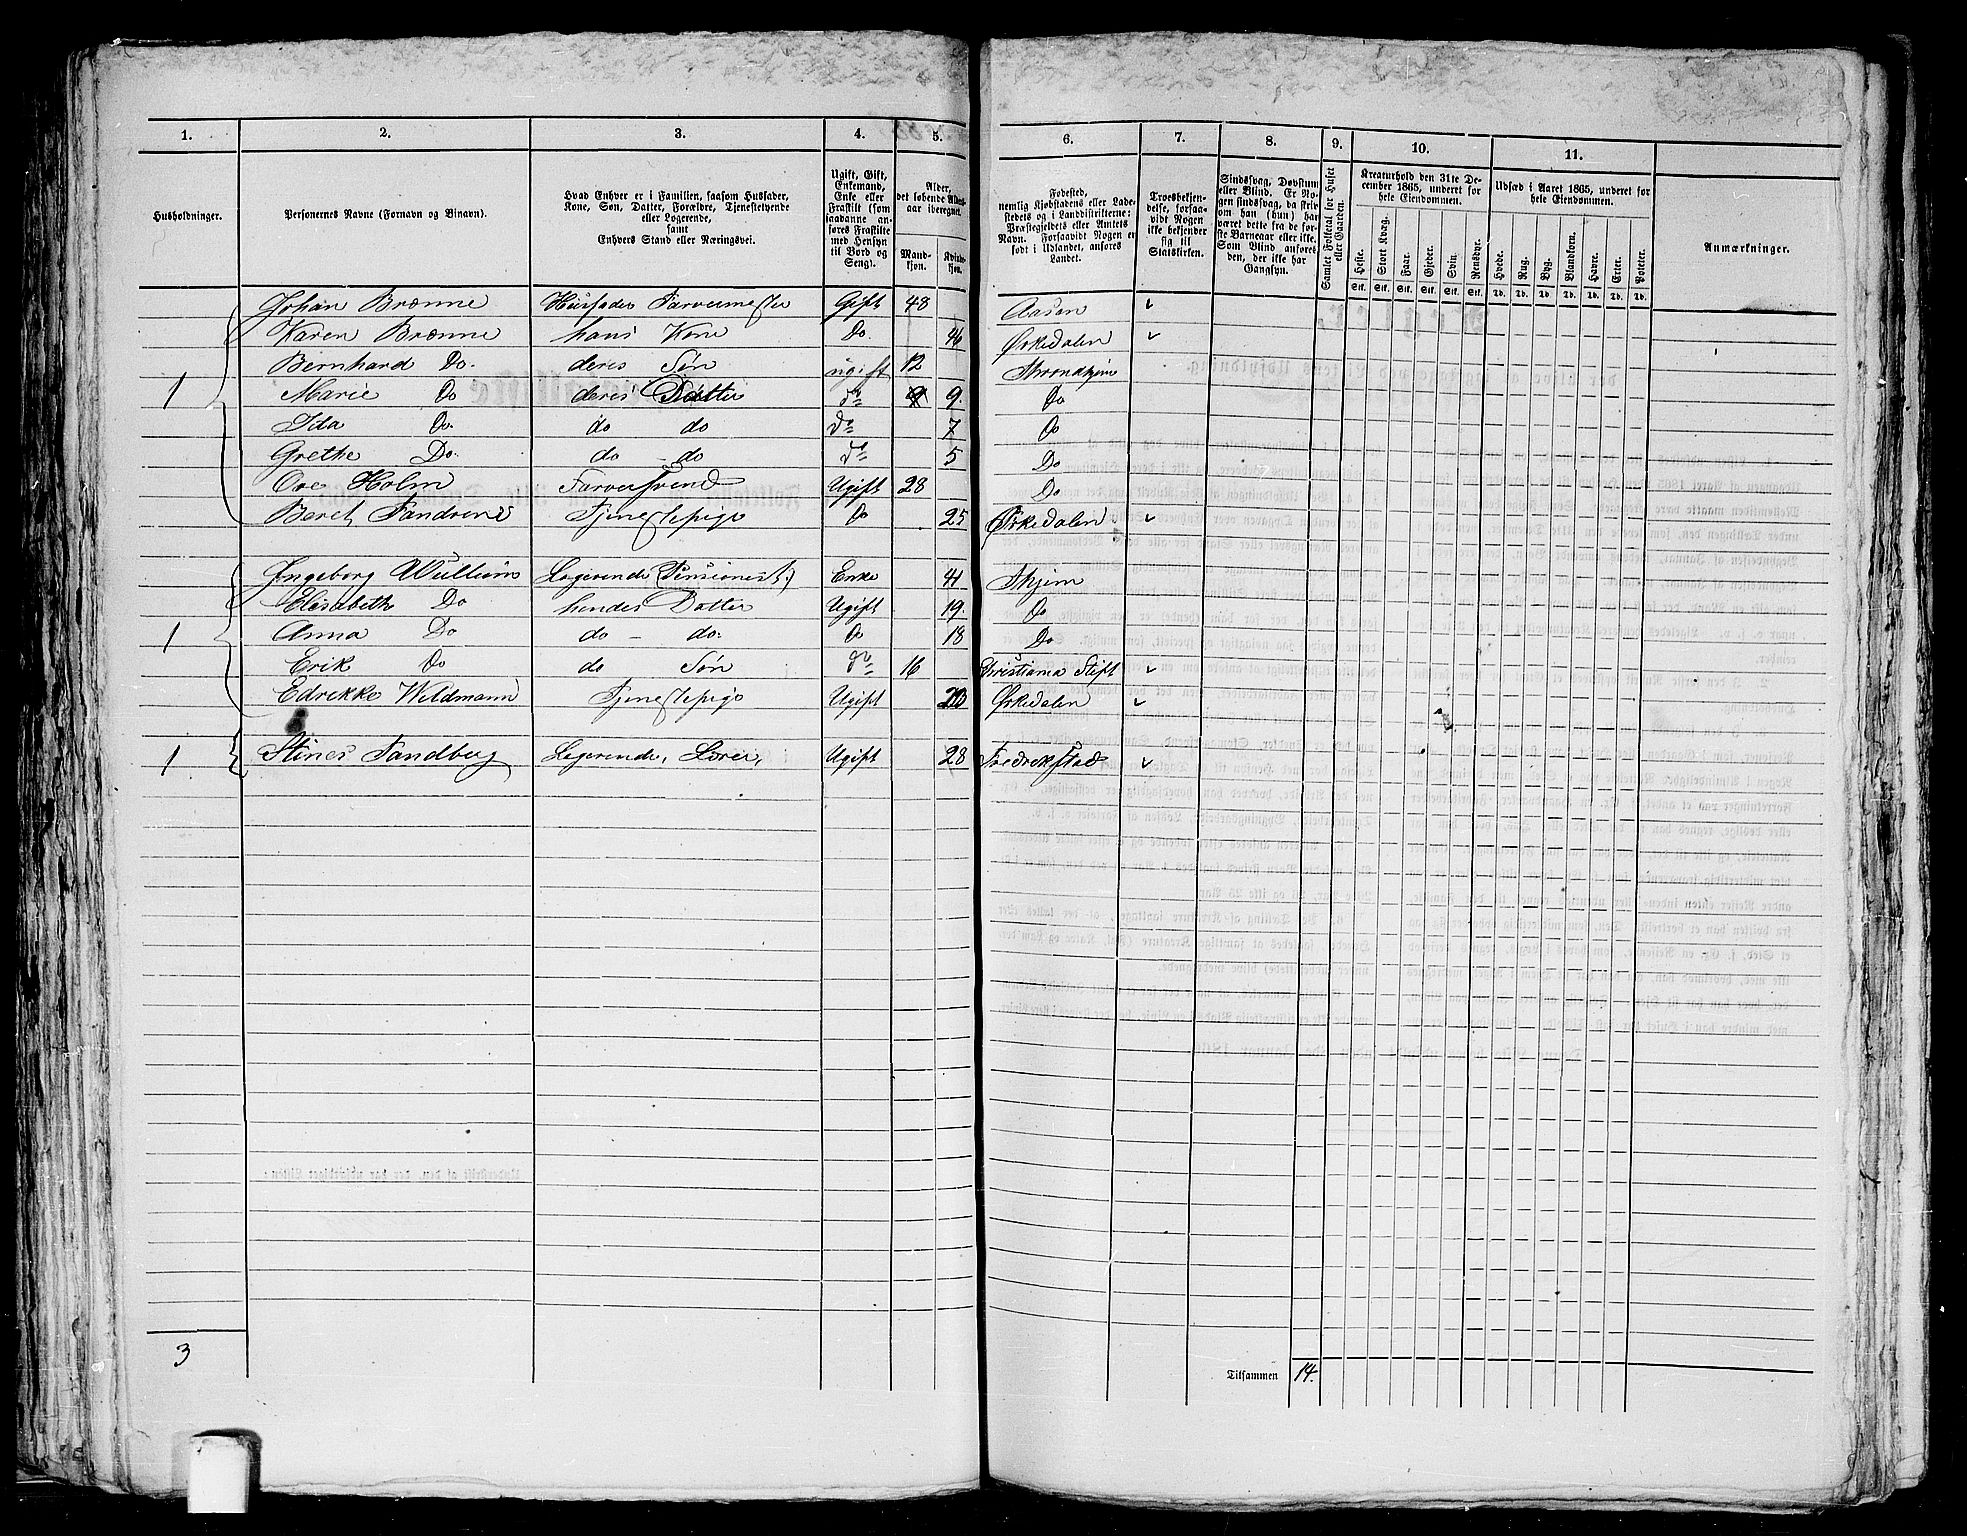 1. 2. 3. 4. 5. 6. 7. 8. 9. 10. 11.
Husholdninger.
Personernes Navne (Fornavn og Binavn).
Hvad Enhver er i Familien, saasom Husfader,
Kone, Søn, Datter, Forældre, Tjenestetyende
eller Logerende,
samt
Enhvers Stand eller Næringsvei.
Ugift, Gift,
Enkemand,
Enke eller
Fraskilt (som
saadanne an-
føres Fraskilte
med Hensyn
til Bord og
Seng).
Alder,
det løbende Alders-
aar iberegnet.
Mand-
kjøn.
Kvinde-
kjøn.
Fødested,
nemlig Kjøbstadens eller Lade-
stedets og i Landdistrikterne:
Præstegjeldets eller Amtets
Navn. Forsaavidt Nogen er
født i Udlandet, anføres
Landet.
Troesbekjen-
delse, forsaa-
vidt Nogen
ikke bekjender
sig til
Statskirken.
Sindssvag, Døvstum
eller Blind. Er No-
gen sindssvag, da skriv
om han (hun) har
været dette fra de før-
ste Barneaar eller ikke.
Som Blind anføres
den, der ikke har
Gangsyn.
Samlet Folketal for Huset
eller Gaarden.
Kreaturhold den 31te De-
cember 1865, underet for
hele Eiendommen.
Heste. Stort Kvæg. Faar. Gjeder. Svin. Rensdyr.
Stk. Stk. Stk. Stk. Stk. Stk.
Udsæd i Aaret 1865, underet for
hele Eiendommen.
Hvede. Rug. Byg. Blandkorn. Havre. Erter. Poteter.
Td. Td. Td. Td. Td. Td. Td.
Anmærkninger.
Johan Brønne Huusfader Farvermester Gift 48 Aasen
Karen Brønne hans Kone Do. 46 Ørkedalen
Bernhard Do. deres Søn ugift 12 Throndhjem
1 Marie Do deres Datter do 9 9. Do
Ida Do. do do do 7 Do
Grethe Do. do - do do 5 Do
Ove Holm Farversvend Ugift 28 Do
Beret Tjenestepige Do 25 Ørkedalen
Ingeborg Wullum Logerende (Pensionist.) Enke 41 Thjem
Elisabeth Do hendes Datter Ugift 19. Do
1 Anna Do do - do. Do 18 Do
Erik Do do Søn do 16 Christiania Stift
Edvikke Weldmann Tjenestepige Ugift 20 Ørkedalen
1 Stines Sandberg Logerende, Ugift 28 Fredrikstad
3
Tilsammen 14.